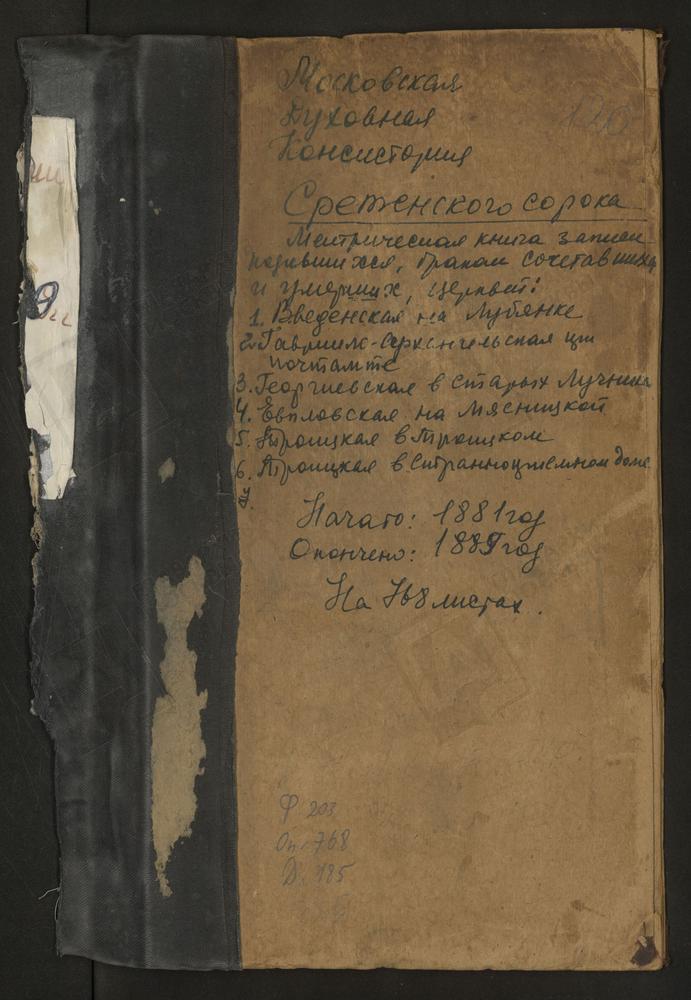 Московская
Духовная
Консистория
120
Сретенского сорока
Метрическая книга записи
родившихся, браком сочетавшихся
и умерших, церквей:
1. Введенская на Лубянке
2. Гавриило-Архангельская при
почтамте
3. Георгиевская в старых Лучниках
4. Евпловская на Мясницкой
5. Троицкая в Троицком
6. Троицкая в Странноприемном доме
7.
Начато: 1881 год
Окончено: год
На листах.
Ф 203
Оп. 768
Д. 185